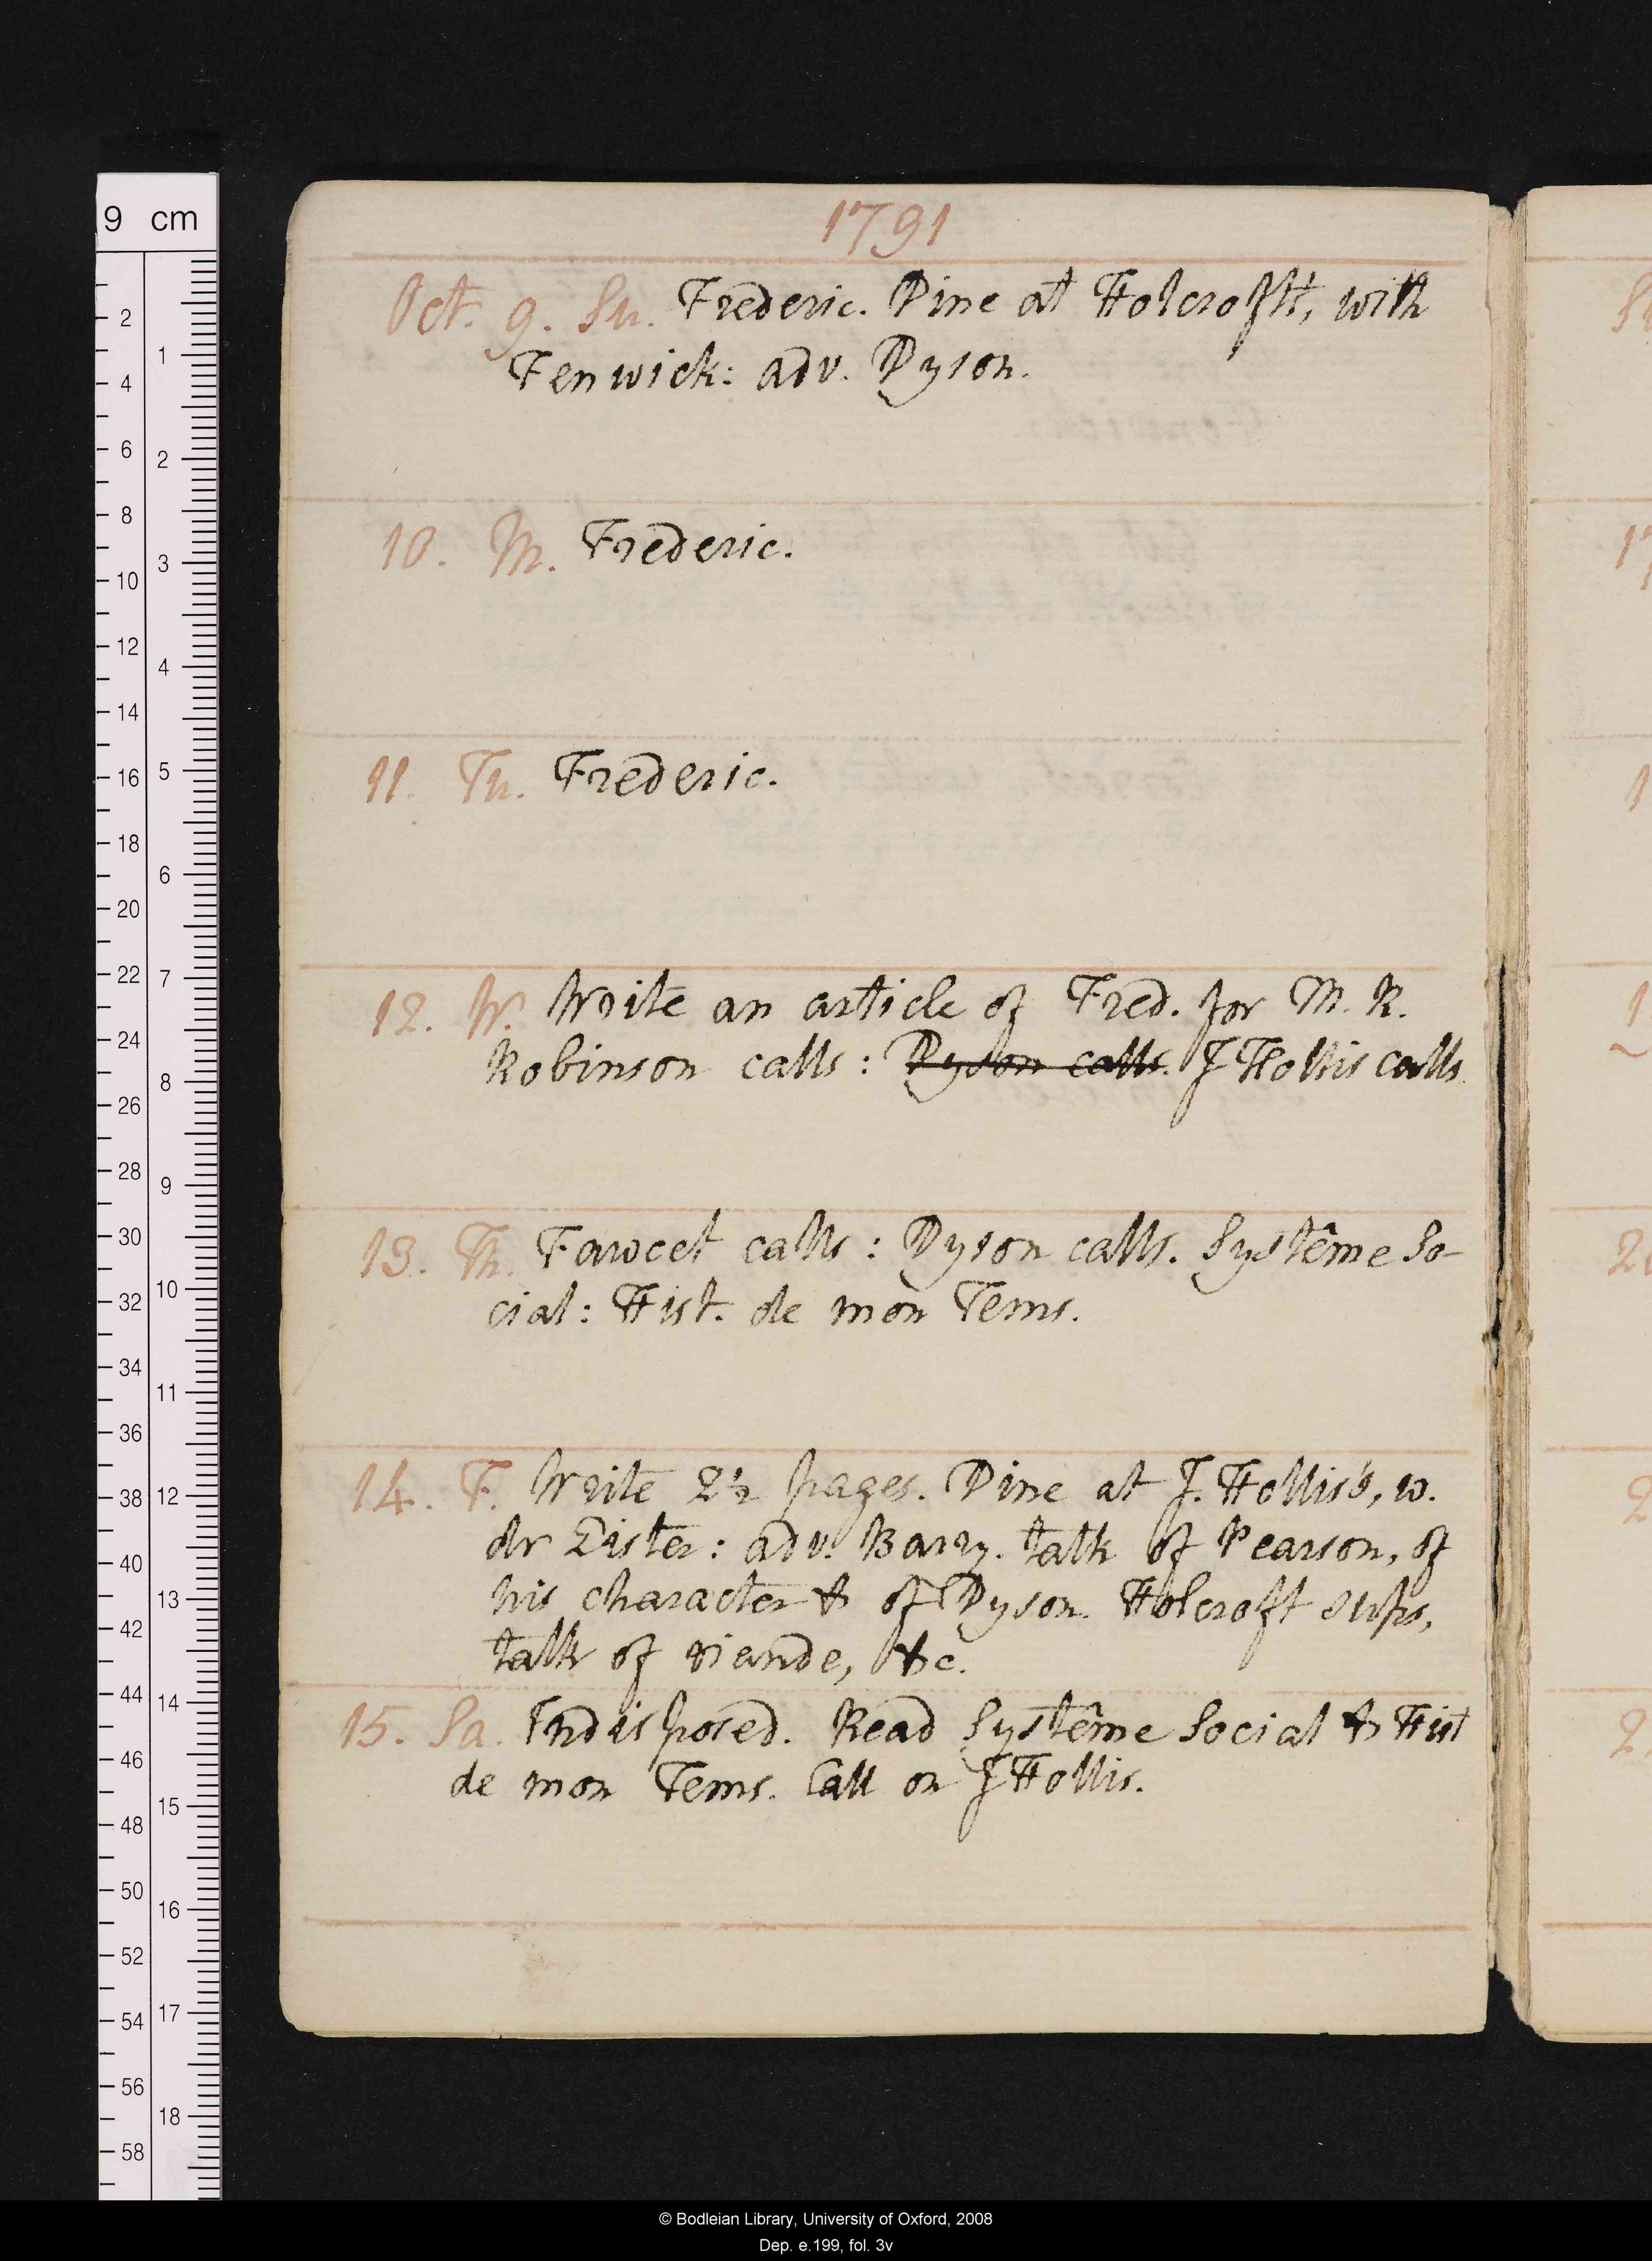 1791
Oct. 9. Su. Frederic. Dine at Holcroft's, with
Fenwick: adv. Dyson.
10. M. Frederic.
11. Tu. Frederic.
12. W. Write an article of Fred. for M. R.
Robinson calls: Dyson calls. J Hollis calls
13. Th. Fawcet calls: Dyson calls. Systême So-
cial: Hist. de mon Tems.
14. F. Write 2½ pages. Dine at J. Hollis's, w.
dr Lister: adv. Barry. talk of Pearson, of
his character & of Dyson. Holcroft sups,
talk of viande, &c.
15. Sa. Indisposed. Read Systême Social & Hist
de mon Tems. Call on J Hollis.
9 cm
2
4
6
8
10
12
14
16
18
20
22
24
26
28
30
32
34
36
38
40
42
44
46
48
50
52
54
56
58
1
2
3
4
5
6
7
8
9
10
11
12
13
14
15
16
17
18
© Bodleian Library, University of Oxford, 2008
Dep. e.199, fol. 3v